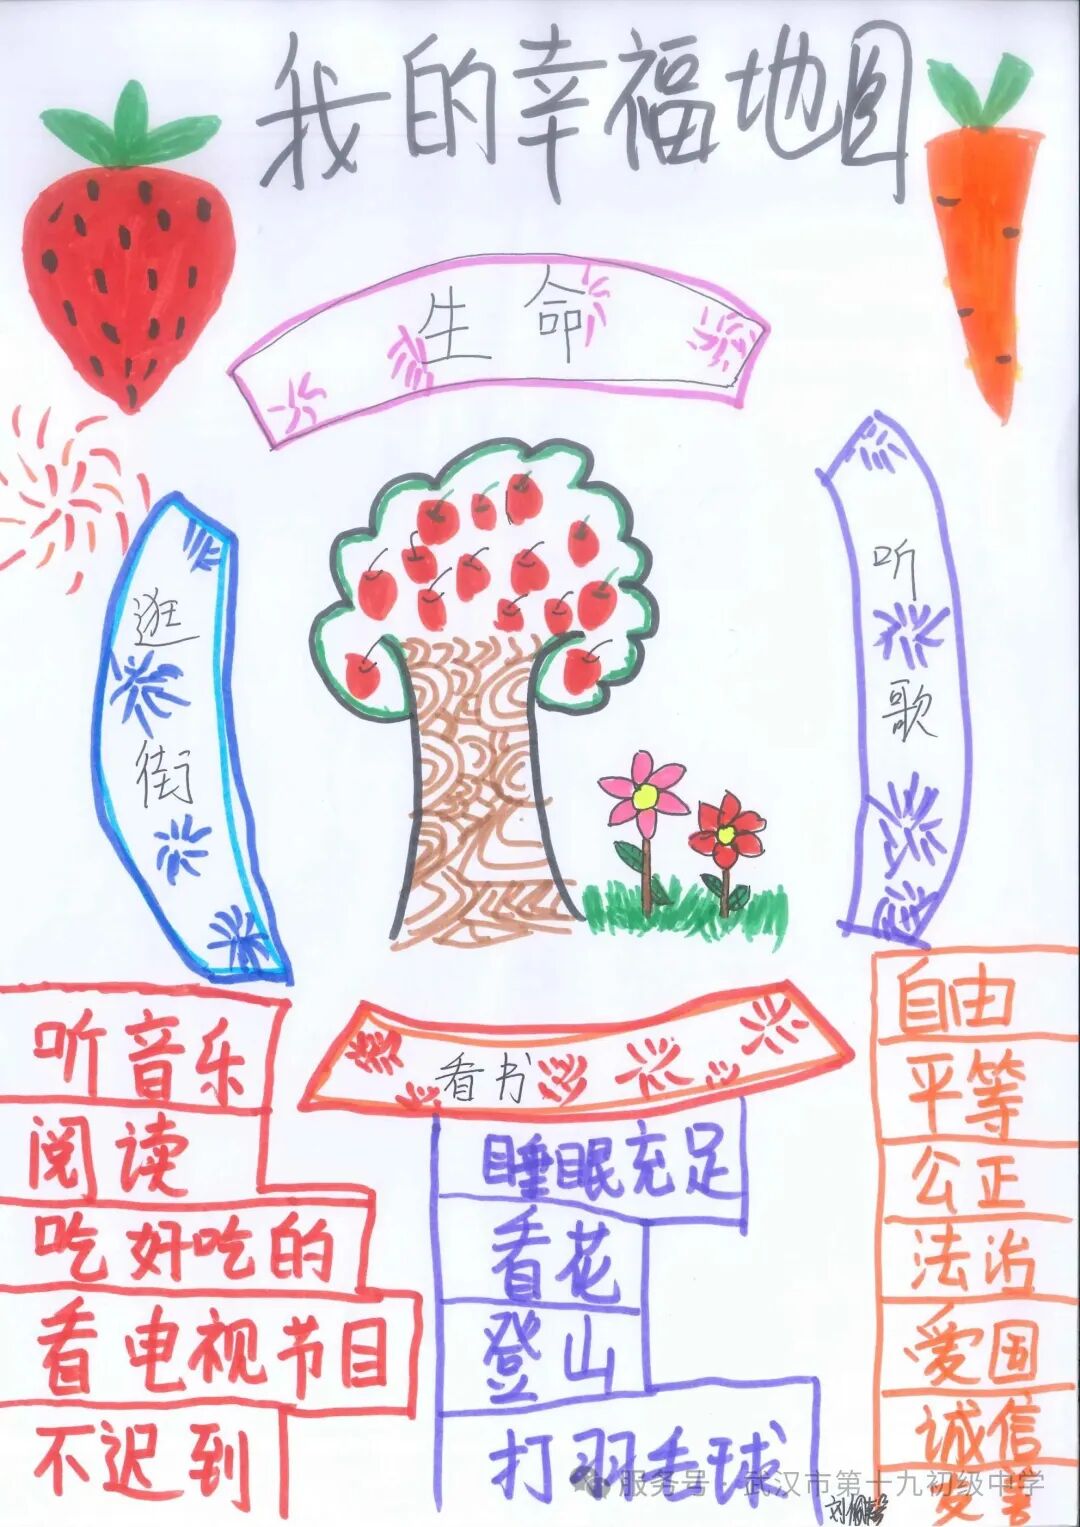 我的幸福地图
生命
逛街
听歌
看书
听音乐
阅读
吃好吃的
看电视节目
不迟到
睡眠充足
看花
登山
打羽毛球
自由
平等
公正
法治
爱国
诚信
友善
服务号·武汉市第十九初级中学